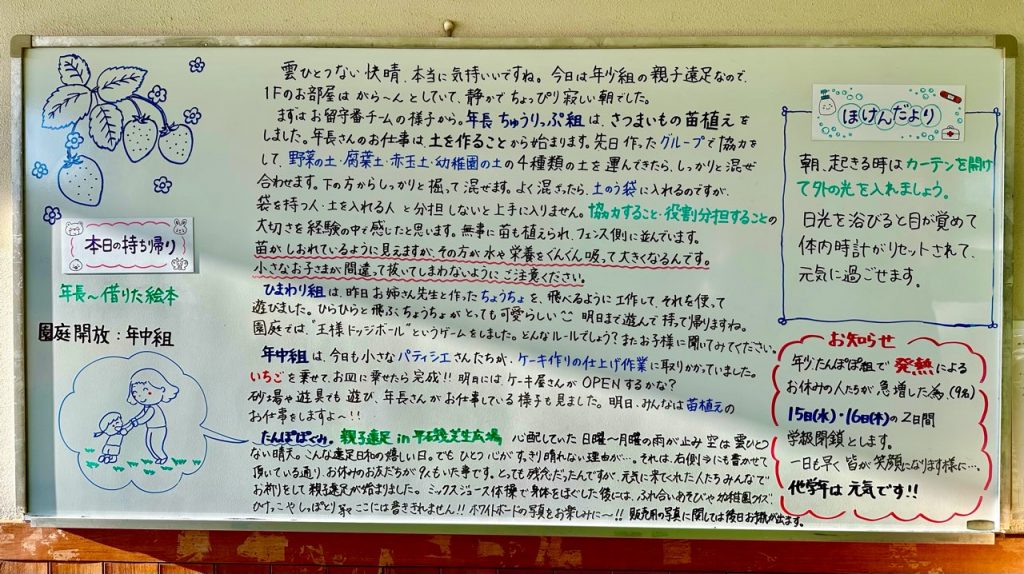 雲ひとつない快晴、本当に気持いいですね。今日は年少組の親子遠足なので、
1Fのお部屋はがら〜んとしていて、静かでちょっぴり寂しい朝でした。
まずはお留守番チームの様子から。年長ちゅうりっぷ組は、さつまいもの苗植えを
しました。年長さんのお仕事は土を作ることから始まります。先日作ったグループで協力を
して、野菜の土・腐葉土・赤玉土・幼稚園の土の4種類の土を運んできたら、しっかりと混ぜ
合わせます。下の方からしっかりと掘って混ぜます。よく混ざったら、土のう袋に入れるのですが、
袋を持つ人・土を入れる人と分担しないと上手に入りません。協力すること・役割分担することの
大切さを経験の中で感じたと思います。無事に苗も植えられ、フェンス側に並んでいます。
苗がしおれているように見えますが、その方が水や栄養をぐんぐん吸って大きくなるんです。
小さなお子さまが間違って抜いてしまわないようにご注意ください。
ひまわり組は、昨日お姉さん先生と作ったちょうちょを、飛べるように工作して、それを使って
遊びました。ひらひらと飛ぶちょうちょがとっても可愛らしい 明日まで遊んで持って帰りますね。
園庭では、"王様ドッジボール"というゲームをしました。どんなルールでしょう?またお子様に聞いてみてください。
年中組は、今日も小さなパティシエさんたちが、ケーキ作りの仕上げ作業に取りかかっていました。
いちごを乗せて、お皿に乗せたら完成!!明日にはケーキ屋さんがOPENするかな?
砂場や遊具でも遊び、年長さんがお仕事している様子も見ました。明日、みんなは苗植えの
お仕事をしますよ〜!!
たんぽぽぐみ。親子遠足 in 芝生広場 心配していた日曜〜月曜の雨が止み空は雲ひとつ
ない晴天。こんな遠足日和の嬉しい日。でもひとつ心がすっきり晴れない理由が…。それは、右側⇒にも書かせて
頂いている通り、お休みのお友だちが9人もいた事です。とっても残念だったんですが、元気に来てくれた人たちみんなで
お祈りをして親子遠足が始まりました。ミックスジュース体操で身体をほぐした後には、ふれ合いあそびや幼稚園クイズ、
ひけっこやしっぽとり等ここには書ききれません!!ホワイトボードの写真をお楽しみに〜!!販売用の写真に関しては後日お知らせが出ます。
本日の持ち帰り
年長〜借りた絵本
園庭開放:年中組
ほけんだより
朝、起きる時はカーテンを開け
て外の光を入れましょう。
日光を浴びると目が覚めて
体内時計がリセットされて、
元気に過ごせます。
お知らせ
年少たんぽぽ組で発熱による
お休みの人たちが急増した為、(9名)
15日(水)・16日(木)の2日間
学級閉鎖とします。
一日も早く皆が笑顔になります様に…。
他学年は元気です!!